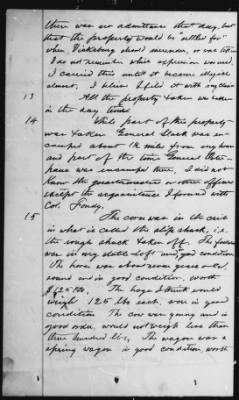 there was no admittance that day, but
that the property would be "settled for"
when Vicksburg should surrender, or was taken
I do not remember which expression was used,
I carried this until it became illegible
almost. I believe I filed it with my claim
13 All the property taken was taken
in the day time.
14 While part of this property
was taken General Steele was en-
camped about 1½ miles from my house
and part of the time General Oster-
haus was encamped there, I did not
know the quartermasters or other officers
except the acquaintance I formed with
Col. Fondy.
15 The corn was in the crib
in what is called the slip shuck, i.e.
the rough shuck taken off. The fodder
was in my stable loft and, good condition
The horse was about seven years old,
sound and in good condition, worth
$125.00. The hogs I think would
weigh 125 lbs each, were in good
condition The cow was young and in
good order, would not weigh less than
three hundred lbs, The wagon was a
spring wagon in good condition, worth